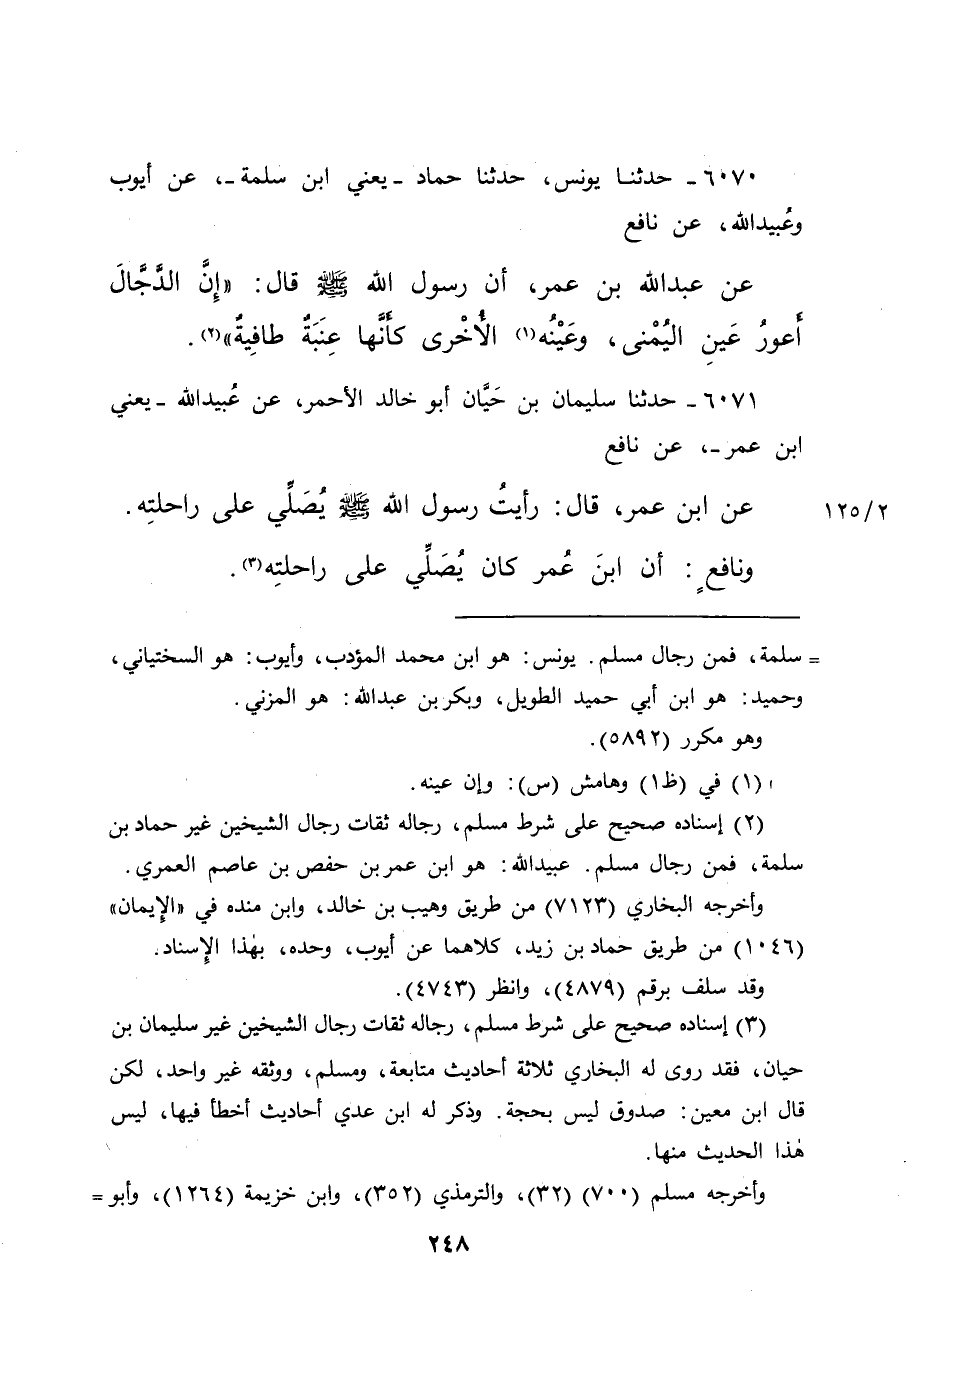 ٦٠٧٠ـ حدثنـا يونس، حدثنا حماد ـ يعني ابن سلمة ـ، عن أيوب
وعُبيدالله، عن نافع
عن عبدالله بن عمر، أن رسول الله ﷺ قال: «إِنَّ الدَّجَّالَ
أَعورُ عَينِ اليُمْنى، وعَيْنُه(١) الأُخْرى كأَنَّها عِنَبَةٌ طافِيةٌ»(٢).
٦٠٧١ـ حدثنا سليمان بن حَيَّان أبو خالد الأحمر، عن عُبيدالله ـ يعني
ابن عمر ـ، عن نافع
عن ابن عمر، قال: رأيتُ رسول الله ﷺ يُصَلِّي على راحلتِه.
١٢٥/٢
ونافعٍ: أن ابنَ عُمر كان يُصَلِّي على راحلتِه(٣).
= سلمة، فمن رجال مسلم. يونس: هو ابن محمد المؤدب، وأيوب: هو السختياني،
وحميد: هو ابن أبي حميد الطويل، وبكر بن عبدالله: هو المزني.
وهو مكرر (٥٨٩٢).
(١) في (ظ١) وهامش (س): وإن عينه.
(٢) إسناده صحيح على شرط مسلم، رجاله ثقات رجال الشيخين غير حماد بن
سلمة، فمن رجال مسلم. عبيدالله: هو ابن عمر بن حفص بن عاصم العمري.
وأخرجه البخاري (٧١٢٣) من طريق وهيب بن خالد، وابن منده في «الإيمان»
(١٠٤٦) من طريق حماد بن زيد، كلاهما عن أيوب، وحده، بهٰذا الإسناد.
وقد سلف برقم (٤٨٧٩)، وانظر (٤٧٤٣).
(٣) إسناده صحيح على شرط مسلم، رجاله ثقات رجال الشيخين غير سليمان بن
حيان، فقد روى له البخاري ثلاثة أحاديث متابعة، ومسلم، ووثقه غير واحد، لكن
قال ابن معين: صدوق ليس بحجة. وذكر له ابن عدي أحاديث أخطأ فيها، ليس
هٰذا الحديث منها.
وأخرجه مسلم (٧٠٠) (٣٢)، والترمذي (٣٥٢)، وابن خزيمة (١٢٦٤)، وأبو =
٢٤٨